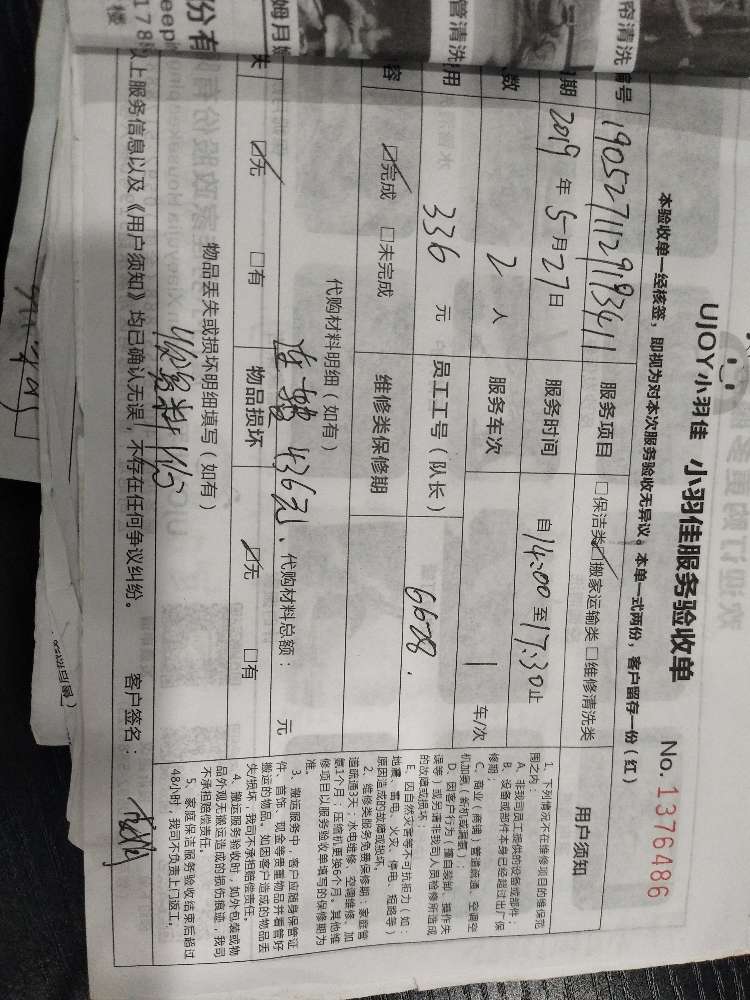 UJOY小羽佳 小羽佳服务验收单
No. 1376486
本验收单一经核签，即视为对本次服务验收无异议。本单一式两份，客户留存一份（红）
编号 1905271129193411 服务项目 □保洁类 ☑搬家运输类 □维修清洗类
期 2019 年 5 月 27 日 服务时间 自 14:00 至 17:30 止
数 2 人 服务车次 1 车/次
用 336 元 员工工号（队长） 6608.
容 ☑完成 □未完成 维修类保修期
代购材料明细（如有）
436元、代购材料总额： 元
失 ☑无 □有 物品损坏 ☑无 □有
物品丢失或损坏明细填写（如有）
以上服务信息以及《用户须知》均已确认无误，不存在任何争议纠纷。 客户签名：
用户须知
1、下列情况不在维修项目的维保范
围之内：
A、非我司员工提供的设备或部件；
B、设备或部件本身已经超过出厂保
修期；
C、商业（商铺）管道疏通、空调空
机加氨（新机或漏氨）；
D、因客户行为（擅自装卸、操作失
误等）或另请非我司人员检修所造成
的故障或损坏；
E、因自然灾害等不可抗拒力（如：
地震、雷电、火灾、停电、短路等）
原因造成的故障或损坏。
2、维修类服务免费保修期：家庭管
道疏通3天；水电维修、空调维修、加
氨1个月；压缩机更换6个月。其他维
修项目以服务验收单填写的保修期为
准。
3、搬运服务中，客户应随身保管证
件、首饰、现金等贵重物品并看管好
搬运的物品，如因客户造成的物品丢
失/损坏，我司不承担赔偿责任。
4、搬运服务验收时，如外包装或物
品外观无搬运造成的损伤痕迹，我司
不承担赔偿责任。
5、家庭保洁服务验收结束后超过
48小时，我司不负责上门返工。
帘清洗
管清洗
姆月嫂
份有
178
楼